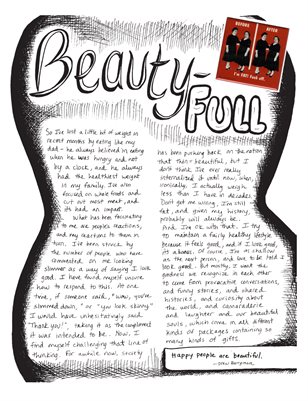 Beauty-
FULL
BEFORE AFTER
I'm FAT! Fuck off.
So I've lost a little bit of weight in
recent months by eating like my
dad - he always believed in eating
when he was hungry and not
by a clock, and he always
had the healthiest weight
in my family. I've also
focused on whole foods and
cut out most meat, and
it's had an impact.
What has been fascinating
to me are people's reactions,
and my reactions to them in
turn. I've been struck by
the number of people who have
commented on me looking
slimmer as a way of saying I look
good. I have found myself unsure
how to respond to this. At one
time, if someone said, "wow, you've
slimmed down," or "you look skinny"
I would have unhesitatingly said
"Thank you!", taking it as the compliment
it was intended to be. Now I
find myself challenging that line of
thinking. For awhile now, society
has been pushing back on the notion
that thin = beautiful, but I
don't think I've ever really
internalized it until now, when,
ironically, I actually weigh
less than I have in decades.
Don't get me wrong, I'm still
fat, and given my history,
probably will always be.
And I'm ok with that. I try
to maintain a fairly healthy lifestyle
because it feels good, and if I look good,
it's a bonus. Of course, I'm as shallow
as the next person, and love to be told I
look good. But mostly, I want the
goodness we recognize in each other
to come from provocative conversations,
and funny stories, and shared
histories, and curiosity about
the world, and camaraderie
and laughter and our beautiful
souls, which come in all different
kinds of packages containing so
many kinds of gifts.
Happy people are beautiful.
- Drew Barrymore